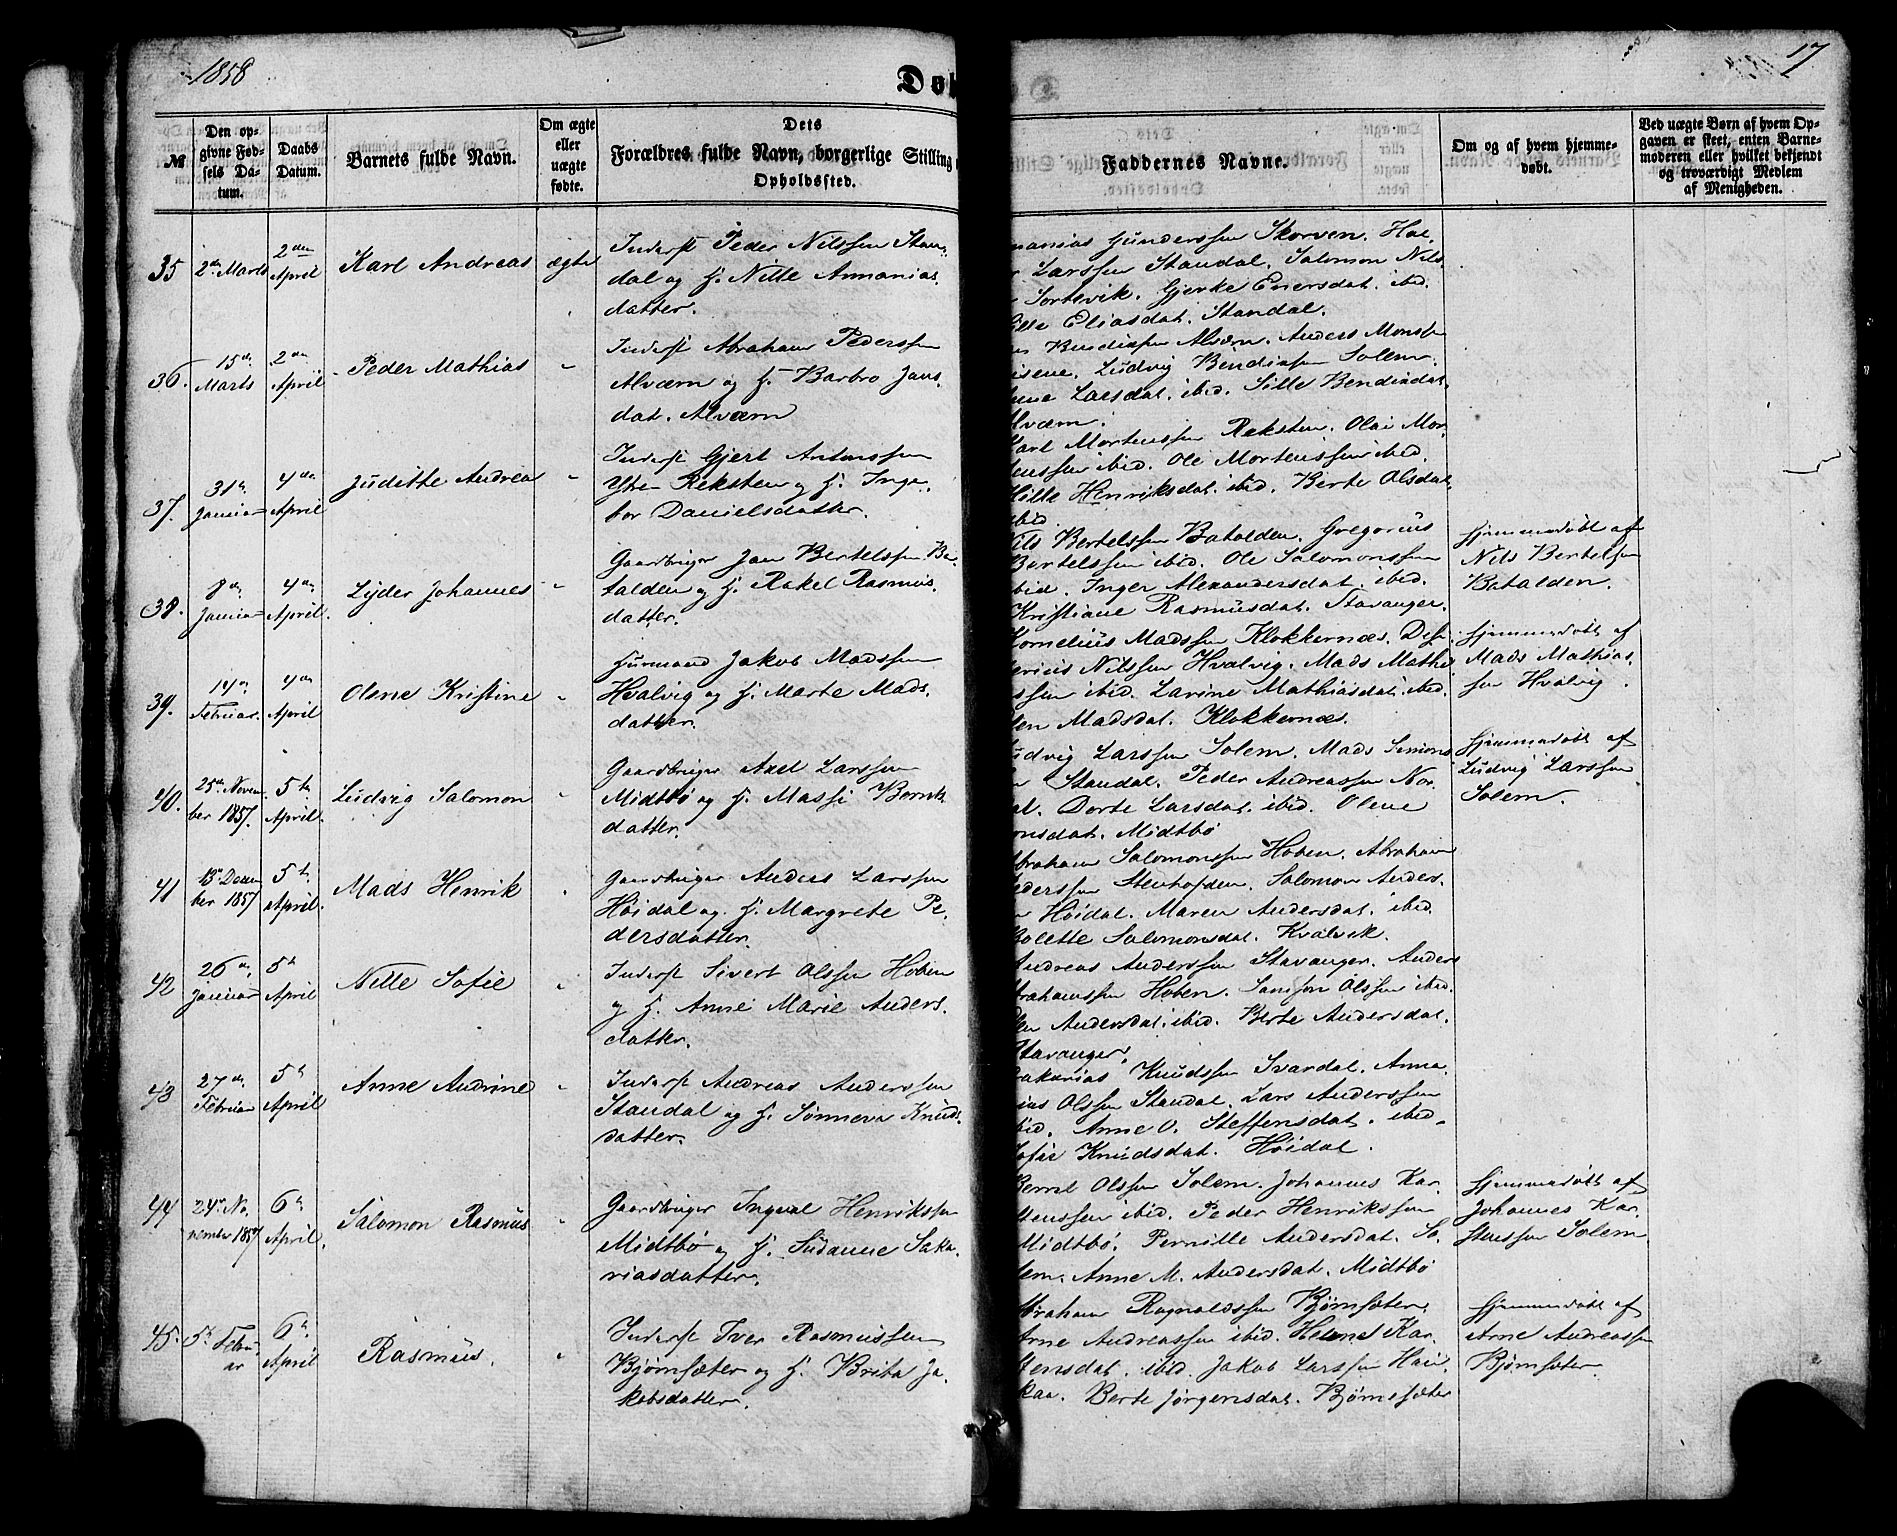 1858
Døb
17
№
Den opgivne Fødsels Datum.
Daabs Datum.
Barnets fulde Navn.
Om ægte eller uægte fødte.
Dets Forældres fulde Navn, borgerlige Stilling
Opholdssted.
Faddernes Navne.
Om og af hvem hjemmedøbt.
Ved uægte Børn af hvem Opgaven er skeet, enten Barnemoderen eller hvilket bekjendt og troværdigt Medlem af Menigheden.
35
2den Marts
2den April
Karl Andreas
ægte
Inderst Peder Nilssen Stan-
dal og H. Nille Annanias-
datter.
nanias Gunderssen Skorven. Hal
r Larssen Standal. Salomon Nils
Sortevik. Gjerke Enersdat. ibid.
ille Eliasdat. Standal.
36.
15de Marts
2den April
Peder Mathias
"
Inderst Abraham Pederssen
Alværn og H. Barbro Jans-
dat. Alværn
us Bendixsen Alværn. Anders Monssen
isene. Ludvig Bendixsen Solem.
ne Larsdat. ibid. Sille Bendixdat.
lværn.
37.
31te Januar
4de April
Juditte Andrea
"
Inderst Gjert Antonssen
Ytre Reksten og H. Inge-
bor Danielsdatter.
Karl Mortenssen Reksten. Olai Mor-
tenssen ibid. Ole Mortenssen ibid.
Hille Henriksdat. ibid. Berte Olsdat.
ibid.
38.
8de Januar
4de April.
Lyder Johannes
"
Gaardbruger Jan Bertelssen Ba-
talden og H. Rakel Rasmus-
datter.
Nils Bertelssen Batalden. Gregorius
Bertelssen ibid. Ole Salomonssen
ibid. Inger Alexandersdat. ibid.
Kristiane Rasmusdat. Stavanger.
Hjemmedøbt af
Nils Bertelsen
Batalden.
39.
14de Februar.
4de April
Olene Kristine
"
Huusmand Jakob Madssen
Hvalvig og H. Marte Mads-
datter.
Kornelius Madssen Klokkernæs. Des
erius Nilssen Hvalvig. Mads Mathi
ssen ibid. Lavine Mathiasdat. ibid.
len Madsdat. Klokkernæs.
Hjemmedøbt af
Mads Mathias-
sen Hvalvig.
40.
25de Novem-
ber 1857.
5te April.
Ludvig Salomon
"
Gaardbruger Axel Larssen
Midtbö og H. Massi Bernt-
datter.
Ludvig Larssen Solem. Mads Simons
n Standal. Peder Andreassen Nor
al. Dorte Larsdat. ibid. Olene
onsdat. Midtbö
Hjemmedøbt af
Ludvig Larssen
Solem.
41
13de Decem
ber 1857
5te April.
Mads Henrik
"
Gaardbruger Anders Larssen
Höidal og H. Margrete Pe-
dersdatter.
Abraham Salomonssen Hoven. Abraham
ederssen Stenhofden. Salomon Anders-
n Höidal. Maren Andersdat. ibid.
Bolette Salomonsdat. Kvalvik.
42
26de Januar
5te April
Nille Sofie
"
Inderst Sivert Olssen Hoven
og H. Anne Marie Anders-
datter.
Andreas Anderssen Stavanger. Anders
brahamssen Hoven. Samson Olssen ibid.
len Andersdat. ibid. Berte Andersdat.
Stavanger.
43
27de Februar
5te April
Anne Andrine
"
Inderst Andreas Anderssen
Standal og H. Sønneva Knuds-
datter.
akarias Knudssen Svardal. Anna
ias Olssen Standal. Lars Anderssen
ibid. Anne O. Steffensdat. ibid.
ofie Knudsdat. Höidal.
44
24de No-
vember 1857
6te April.
Salomon Rasmus
"
Gaardbruger Ingval Henrikssen
Midtbö og H. Susanne Saka-
riasdatter.
Bernt Olssen Solem. Johannes Kar-
stenssen ibid. Peder Henrikssen
Midtbö. Pernille Andersdat. So-
lem. Anne M. Andersdat. Midtbö
Hjemmedøbt af
Johannes Kar-
stenssen Solem
45.
5te Febru-
ar
6te April
Rasmus.
"
Inderst Iver Rasmussen
Bjørnsæter og H. Brita Ja-
kobsdatter.
Abraham Ragnaldssen Bjørnsæter.
Arne Andreassen ibid. Helene Kar-
stensdat. ibid. Jakob Larssen Hau-
kaa. Berte Jörgensdat. Bjørnsæter
Hjemmedøbt af
Arne Andreassen
Bjørnsæter.